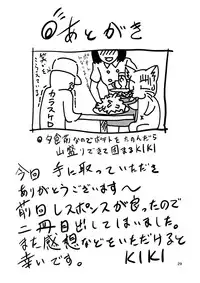 あとがき
カラスヤD
夕食前なのでポテトをたのんだら
山盛りできて困るKIKI
今回 手に取っていただき
ありがとうございます〜
前回レスポンスが良ったので
二冊目出してしまいました。
また感想などといただけると
幸いです。 KIKI